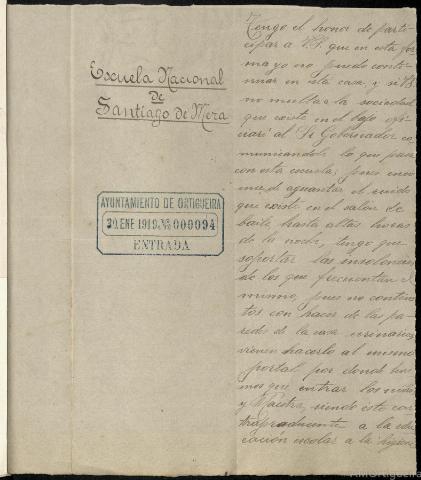 Escuela Nacional
de
Santiago de Mera
AYUNTAMIENTO DE ORTIGUEIRA
20. ENE 1919. Nº 000094
ENTRADA
Tengo el honor de parti-
cipar a V.S. que en esta for-
ma yo no puedo conti-
nuar en esta casa, y si V.S.
no multa a la sociedad
que existe en el bajo ofi-
ciaré al Sr Gobernador co-
municandole lo que pasa
con esta escuela, pues
de aguantar el ruido
que existe en el salón de
baile hasta altas horas
de la noche, tengo que
soportar las insolencias
de los que frecuentan el
mismo, pues no conten-
tos con hacer de las pa-
redes de la casa urinarios
vienen hacerlo al mismo
portal por donde tene-
mos que entrar los niños
y Maestra, siendo esto con-
traproducente a la edu-
cación escolar a la higiene